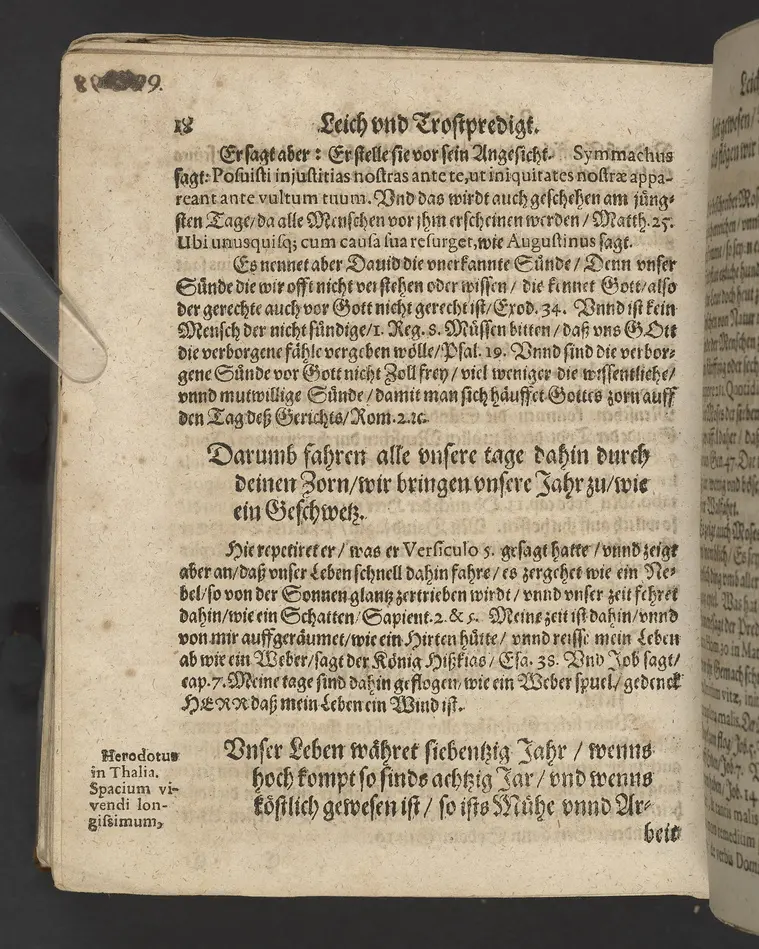 9.
18 Leich vnd Trostpredigt.
Er sagt aber: Er stelle sie vor sein Angesicht. Symmachus
sagt: Posuisti injustitias nostras ante te, ut iniquitates nostræ appa-
reant ante vultum tuum. Vnd das wirdt auch geschehen am jüng-
sten Tage/ da alle Menschen vor jhm erscheinen werden / Matth. 25.
Ubi unusquisq; cum causa sua resurget, wie Augustinus sagt.
Es nennet aber Dauid die vnerkannte Sünde / Denn vnser
Sünde die wir offt nicht verstehen oder wissen / die kennet Gott/ also
der gerechte auch vor Gott nicht gerecht ist/ Exod. 34. Vnnd ist kein
Mensch der nicht sündige/ 1. Reg. 8. Müssen bitten / daß vns GOtt
die verborgene fähle vergeben wölle/ Psal. 19. Vnnd sind die verbor-
gene Sünde vor Gott nicht Zoll frey / viel weniger die wissentliche/
vnnd mutwillige Sünde / damit man sich häuffet Gottes zorn auff
den Tag deß Gerichts/ Rom. 2. ꝛc.
Darumb fahren alle vnsere tage dahin durch
deinen Zorn/ wir bringen vnsere Jahr zu/ wie
ein Geschwetz.
Hie repetiret er / was er Versiculo 5. gesagt hatte / vnnd zeigt
aber an/ daß vnser Leben schnell dahin fahre / es zergehet wie ein Ne-
bel/ so von der Sonnen glantz zertrieben wirdt / vnnd vnser zeit fehret
dahin/ wie ein Schatten/ Sapient. 2. & 5. Meine zeit ist dahin/ vnnd
von mir auffgeräumet/ wie ein Hirten hütte / vnnd reisse mein Leben
ab wie ein Weber/ sagt der König Hißkias / Esa. 38. Vnd Job sagt/
cap. 7. Meine tage sind dahin geflogen/ wie ein Weber spuel/ gedenck
HERR daß mein Leben ein Wind ist.
Vnser Leben währet siebentzig Jahr / wenns
hoch kompt so sinds achtzig Jar / vnd wenns
köstlich gewesen ist / so ists Mühe vnnd Ar-
beit
Herodotus
in Thalia.
Spacium vi-
vendi lon-
gissimum,